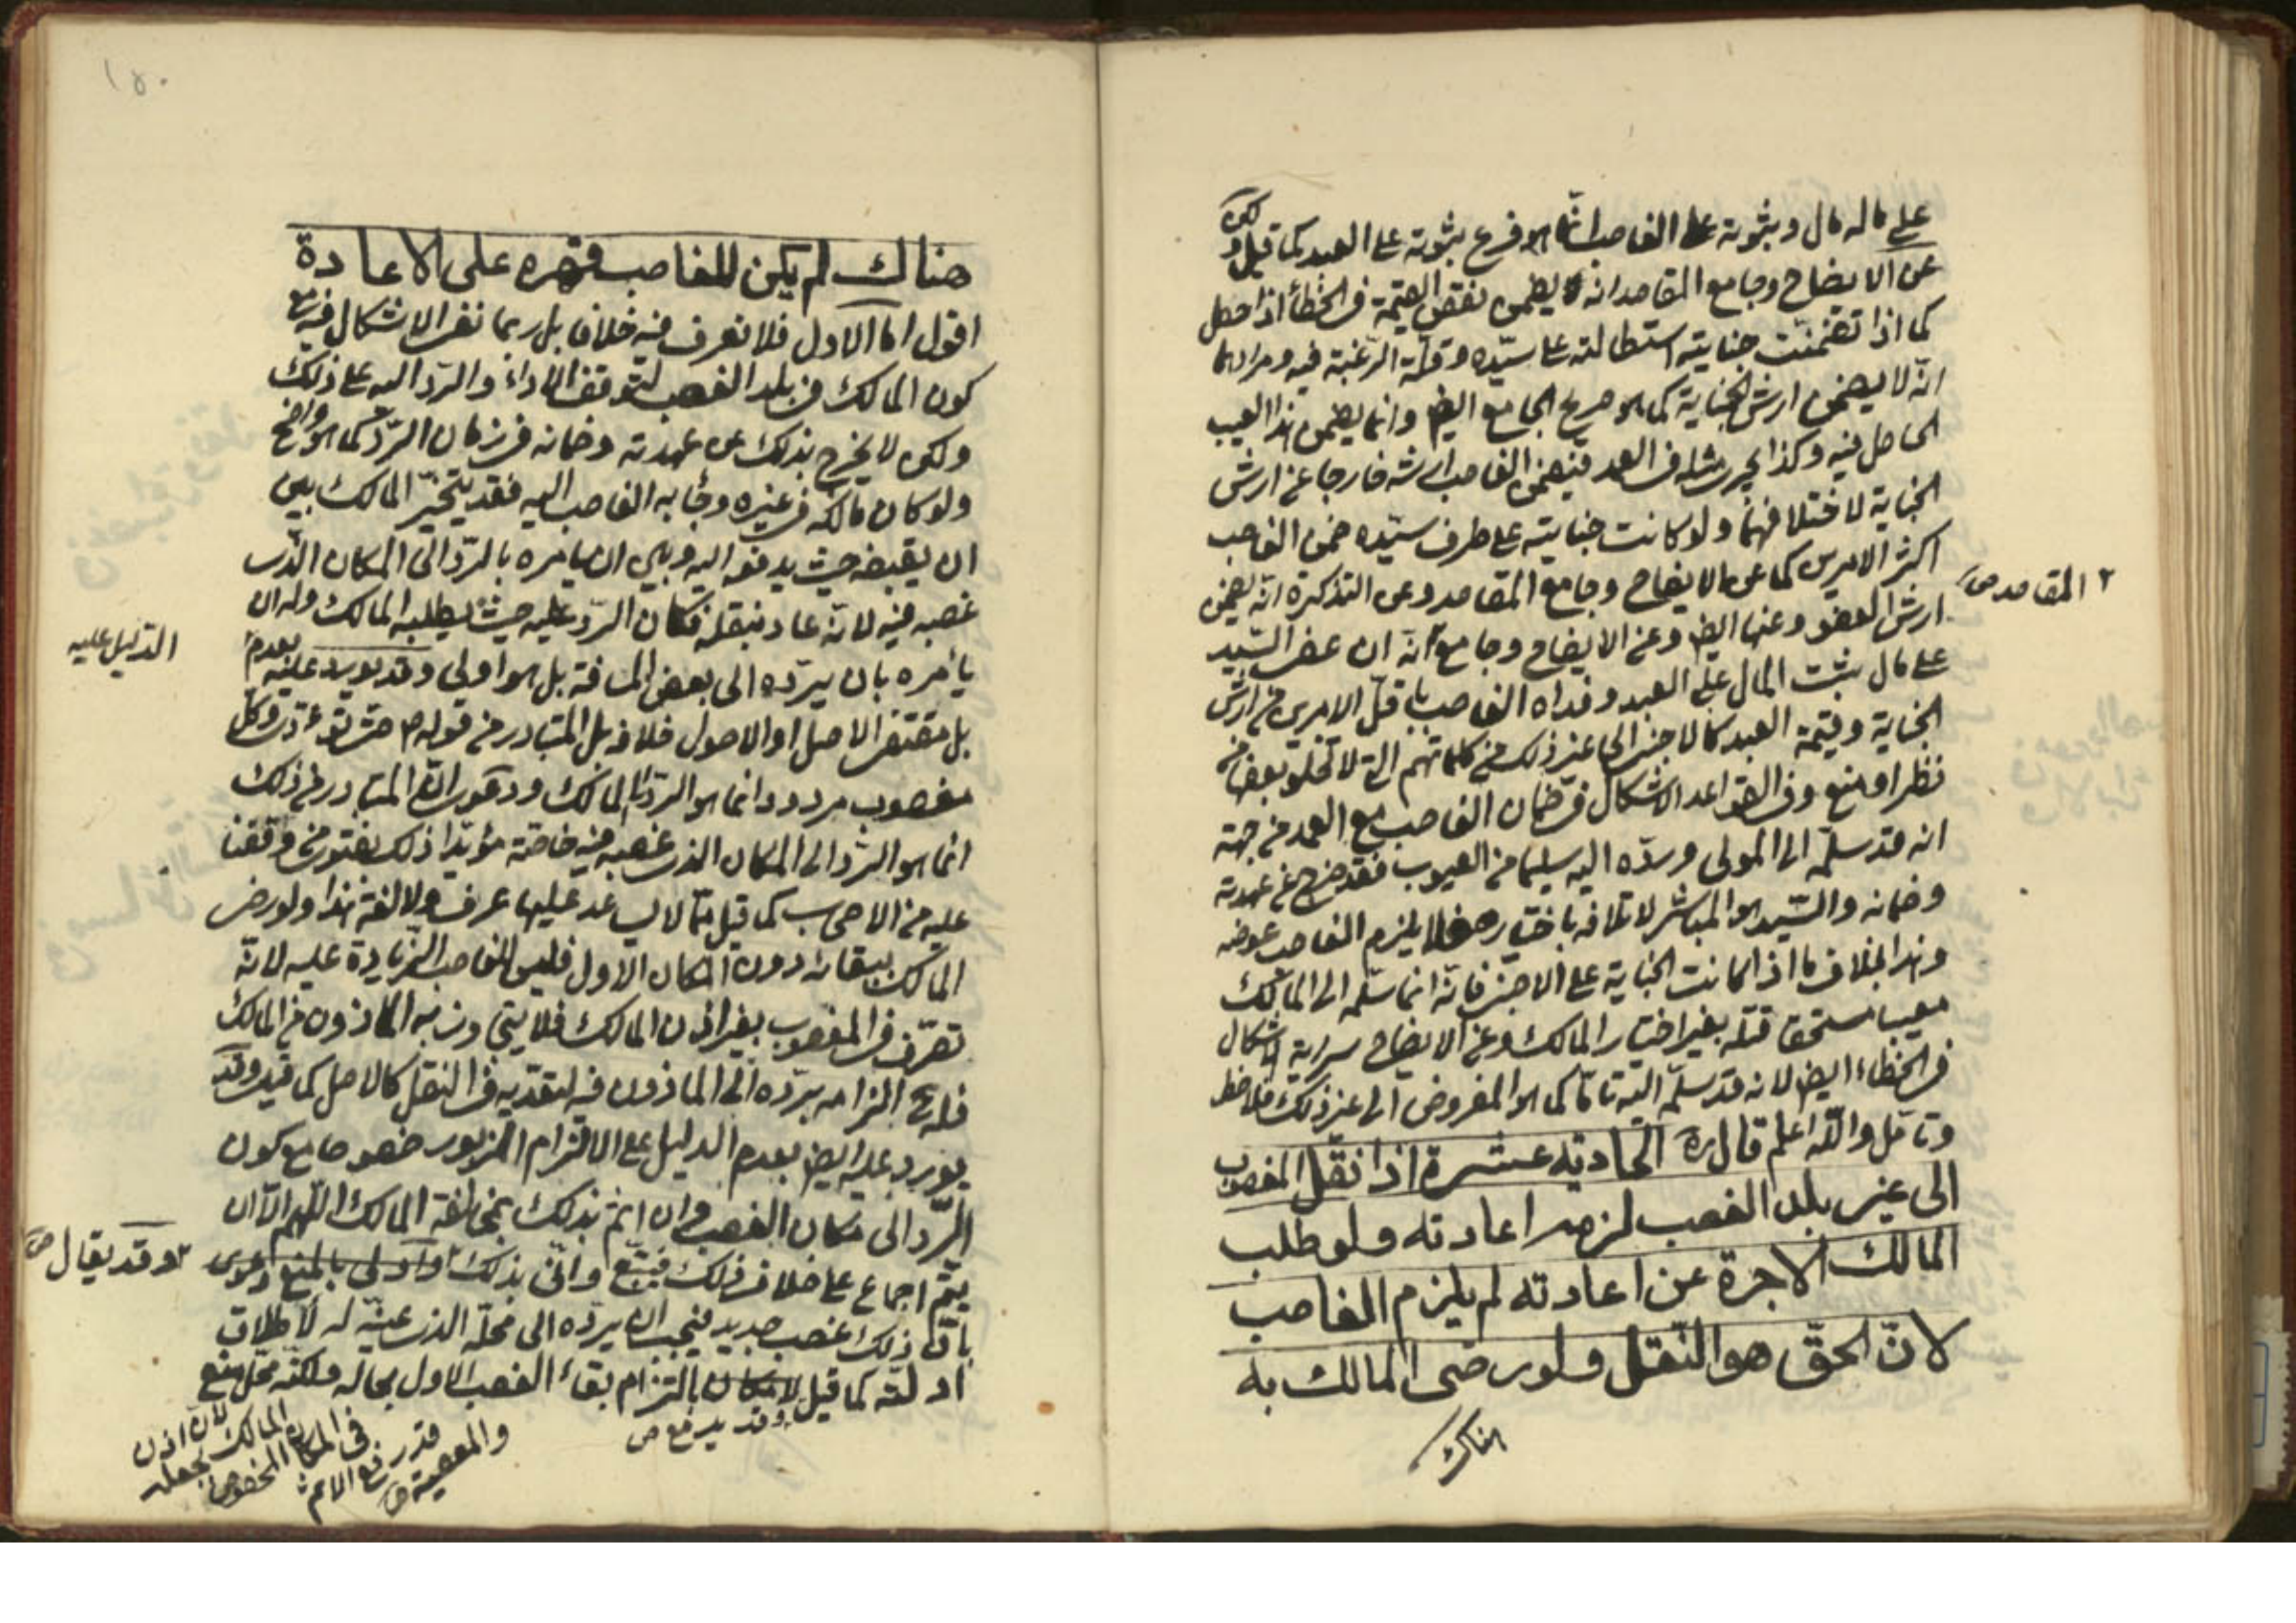 على ماله مال وثبوته على الغاصب انما هو فرع ثبوته على العبد كما قيل و
عن الايضاح وجامع المقاصد انه يضمن نقص القيمة في الخطأ اذا حصل
كما اذا تضمنت جنايته استطالته على سيّده وقلّة الرغبة فيه ومرادهما
انّه لا يضمن ارش الجناية كما هو صريح الجامع ايضا وانما يضمن هذا العيب
الحاصل فيه وكذا يجرى مثله فى العمد فيضمن الغاصب ارشه خارجا عن ارش
الجناية لاختلافهما ولو كانت جنايته على طرف سيّده ضمن الغاصب
اكثر الامرين كما عن الايضاح وجامع المقاصد وعن التذكرة انّه يضمن
ارش العضو وعنها ايضا وعن الايضاح وجامع انّه ان عفى السّيد
٢ المقاصد ص
على مال ثبت المال على العبد وفداه الغاصب باقلّ الامرين من ارش
الجناية وقيمة العبد كالاجنبى الى غير ذلك من كلماتهم التى لا تخلو بعضها من
نظر او منع وفى القواعد الاشكال فى ضمان الغاصب مع العمد من جهة
انه قد سلّمه الى المولى وردّه اليه سليما من العيوب فقد خرج عن عهدته
وضمانه والسّيد هو المباشر لاتلافه باختياره فلا يلزم الغاصب عوضه
وهذا بخلاف ما اذا كانت الجناية على الاجنبى فانّه انما سلّمه الى المالك
معيبا مستحقا قتله بغير اختيار المالك وعن الايضاح سراية الاشكال
فى الخطاء ايضا لانه قد سلّمه اليه تامّا كما هو المفروض الى غير ذلك فلاحظ
وتامّل واللّه اعلم قال ره الحادية عشرة اذا نقل المغصوب
الى غير بلد الغصب لزمه اعادته ولو طلب
المالك الاجرة عن اعادته لم يلزم الغاصب
لانّ الحقّ هو النّقل ولو رضى المالك به
هناك
١٥٠
هناك لم يكن للغاصب قهره على الاعادة
اقول اما الاول فلا نعرف فيه خلافا بل ربما نفى الاشكال فيه مع
كون المالك فى بلد الغصب لتوقف الاداء والردّ اليه على ذلك
ولكن لا يخرج بذلك عن عهدته وضمانه فى زمان الردّ كما هو واضح
ولو كان مالكه فى غيره وجاء به الغاصب اليه فقد يتخيّر المالك بين
ان يقبضه حيث يدفعه اليه وبين ان يأمره بالردّ الى المكان الذى
غصبه فيه لانّه عاد بنقله فكان الردّ عليه حيث يطلبه المالك وله ان
يأمره بان يردّه الى بعض المسافة بل هو اولى وقد يورد عليه بعدم
الدليل عليه
بل مقتضى الاصل او الاصول خلافه بل المتبادر من قوله ص حتى تؤدّى وكل
مغصوب مردود انما هو الردّ الى المالك ودعوى انّ المتبادر من ذلك
انما هو الردّ الى المكان الذى غصبه فيه خاصّة مؤيّدا ذلك بفتوى من وقفنا
عليه من الاصحاب كما قيل ممّا لا يساعد عليها عرف ولا لغة هذا ولو رضى
المالك ببقائه دون المكان الاول فليس للغاصب الزيادة عليه لانّه
تصرّف فى المغصوب بغير اذن المالك فلا يتجاوز به الماذون من المالك
فله ح الزامه بردّه الى الماذون فيه لتعدّيه فى النقل كالاصل كما قيل وقد
يورد عليه ايضا بعدم الدليل على الالتزام المزبور خصوصا مع كون
الردّ الى مكان الغصب وان اثم بذلك بمخالفة المالك اللّهم الّا ان
يتمّ اجماع على خلاف ذلك فيتّبع وانّى بذلك
٢ وقد يقال ص
بانّ ذلك غصب جديد فيجب ان يردّه الى محلّه الذى عيّنه له لاطلاق
ادلّته كما قيل بالتزام بقاء الغصب الاول بحاله ولكنّه محلّ منع
وقد يدفع ص
لانّ اذن
المالك بجعله
فى المكان المخصوص
قدر رفع الاثم
والمعصية ص